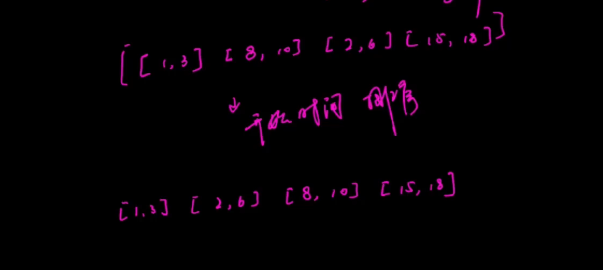 [[1,3] [8,10] [2,6] [15,18]]
↓ 开始时间
[1,3] [2,6] [8,10] [15,18]